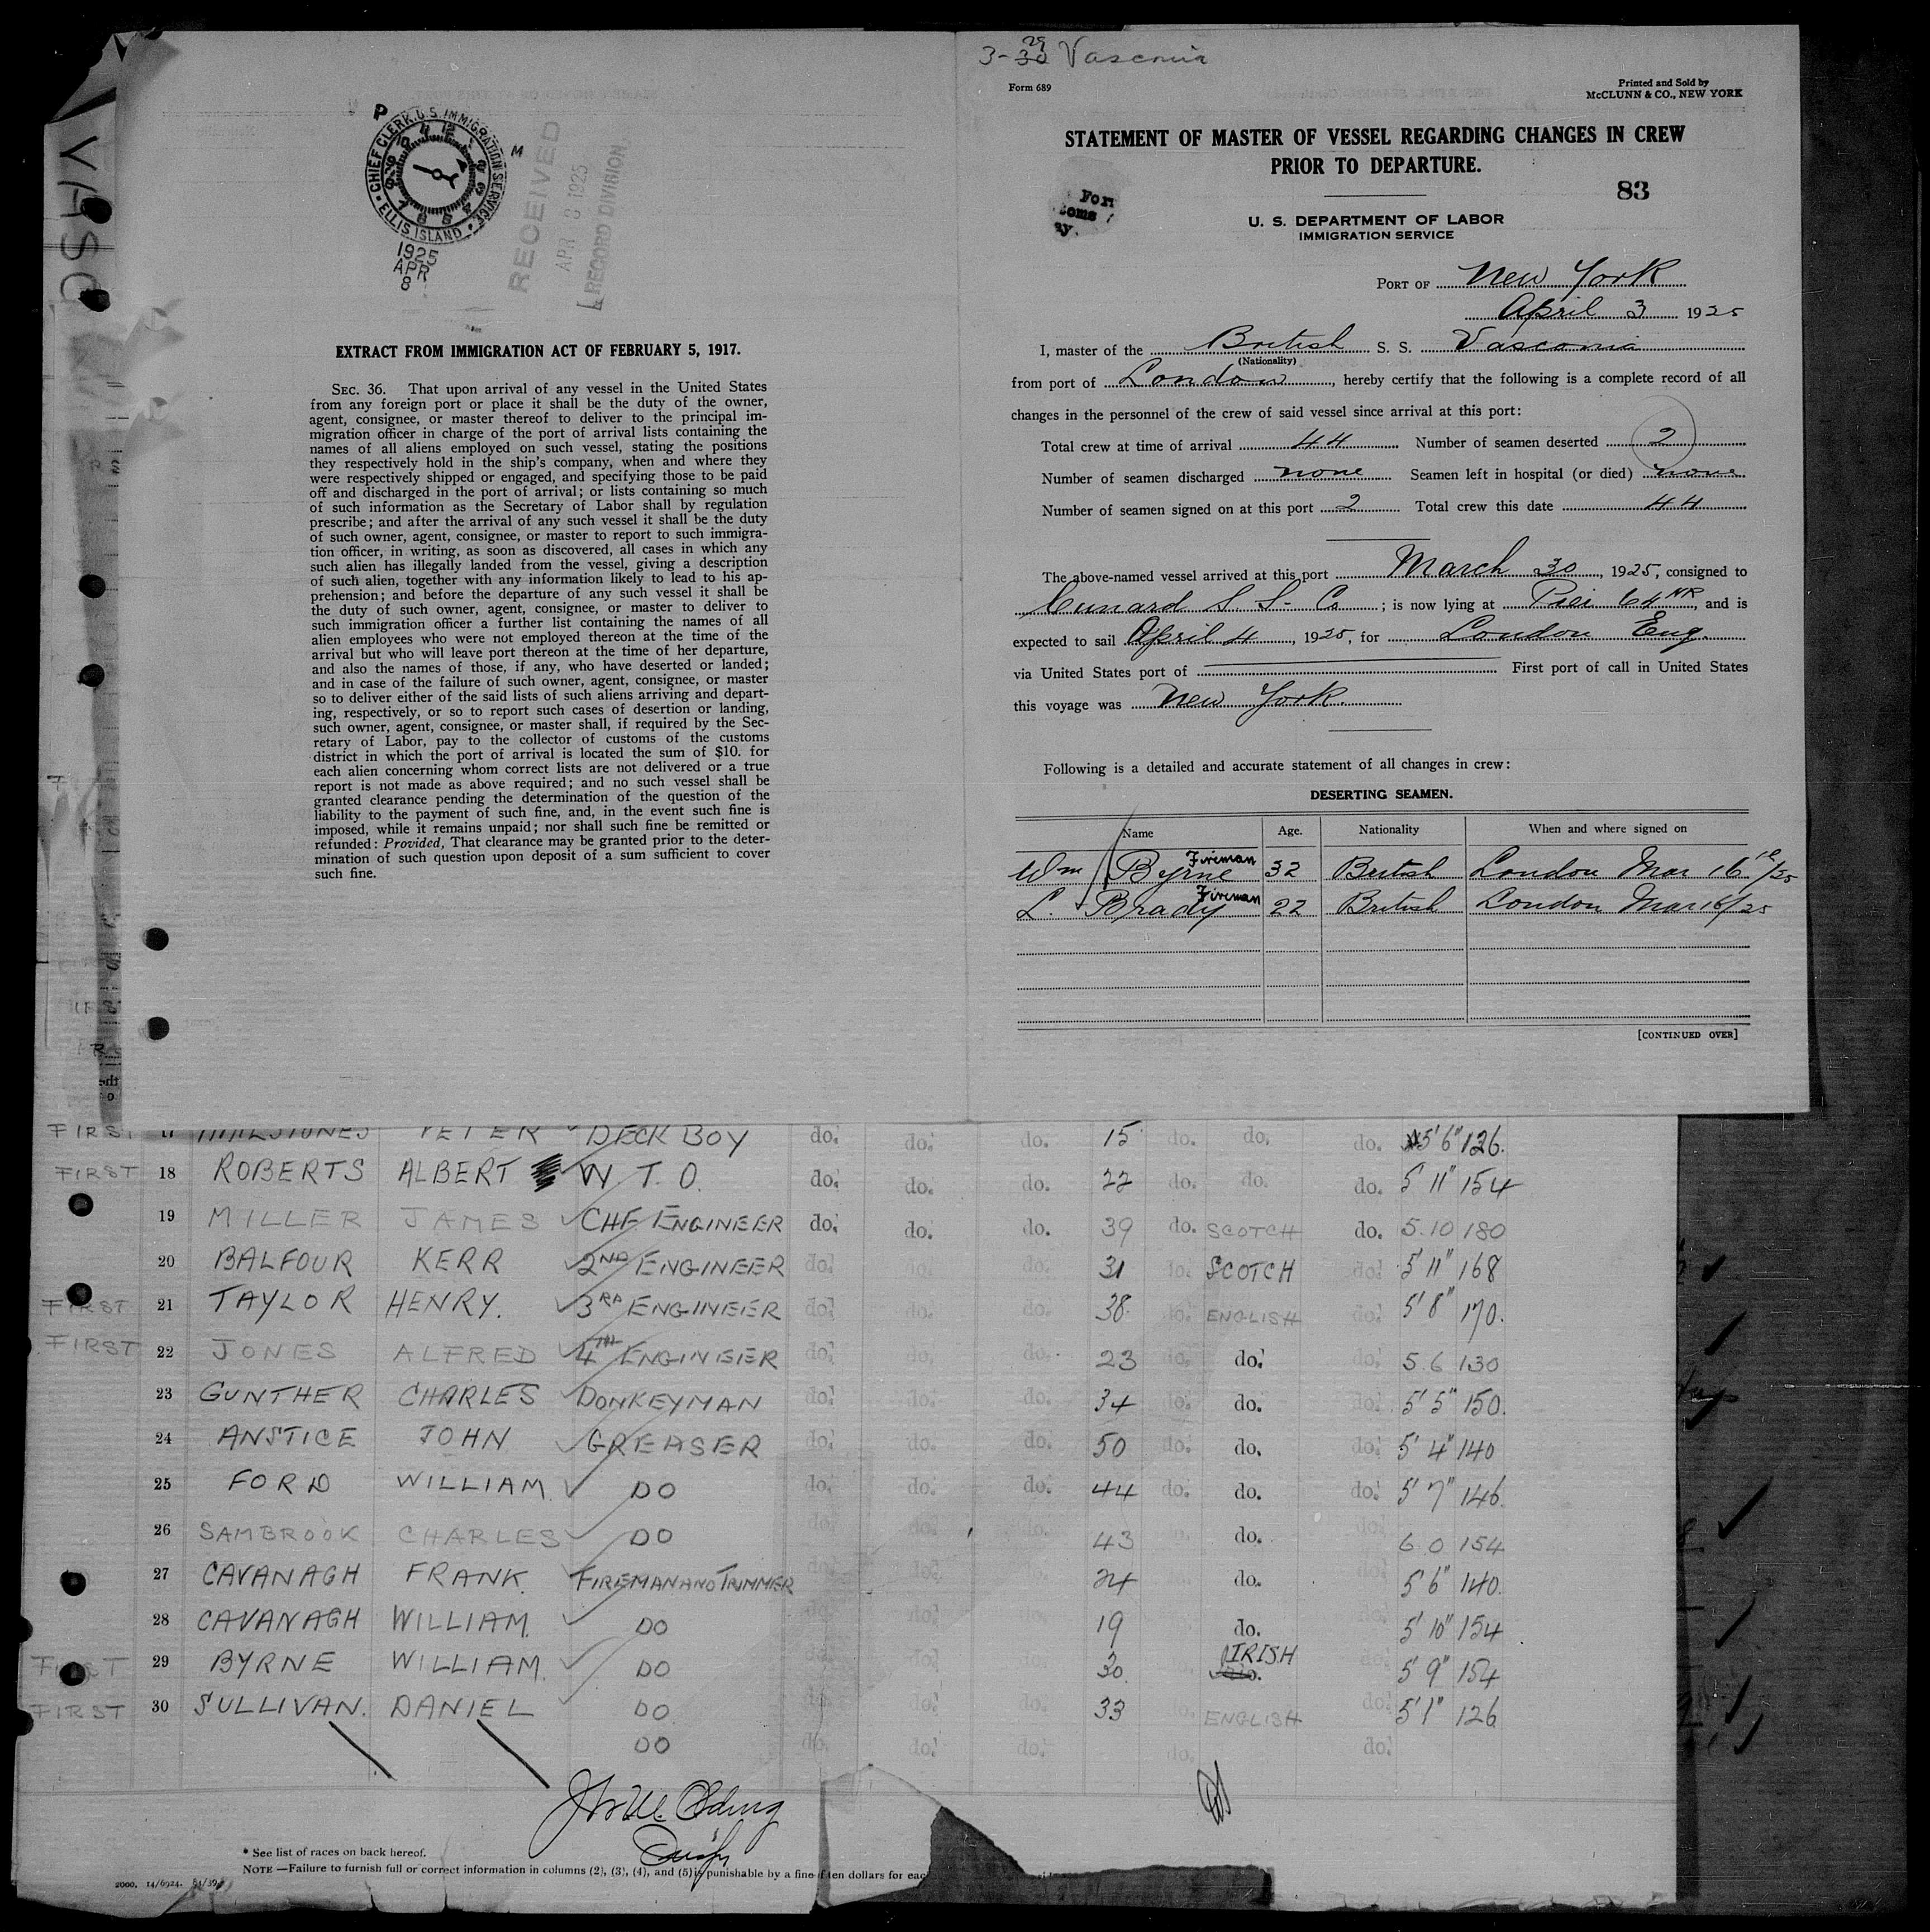 VASCO
P
CHIEF CLERK, U.S. IMMIGRATION SERVICE
ELLIS ISLAND
M
1925
APR
8
RECEIVED
APR 8 1925
RECORD DIVISION
EXTRACT FROM IMMIGRATION ACT OF FEBRUARY 5, 1917.
SEC. 36. That upon arrival of any vessel in the United States
from any foreign port or place it shall be the duty of the owner,
agent, consignee, or master thereof to deliver to the principal im-
migration officer in charge of the port of arrival lists containing the
names of all aliens employed on such vessel, stating the positions
they respectively hold in the ship's company, when and where they
were respectively shipped or engaged, and specifying those to be paid
off and discharged in the port of arrival; or lists containing so much
of such information as the Secretary of Labor shall by regulation
prescribe; and after the arrival of any such vessel it shall be the duty
of such owner, agent, consignee, or master to report to such immigra-
tion officer, in writing, as soon as discovered, all cases in which any
such alien has illegally landed from the vessel, giving a description
of such alien, together with any information likely to lead to his ap-
prehension; and before the departure of any such vessel it shall be
the duty of such owner, agent, consignee, or master to deliver to
such immigration officer a further list containing the names of all
alien employees who were not employed thereon at the time of the
arrival but who will leave port thereon at the time of her departure,
and also the names of those, if any, who have deserted or landed;
and in case of the failure of such owner, agent, consignee, or master
so to deliver either of the said lists of such aliens arriving and depart-
ing, respectively, or so to report such cases of desertion or landing,
such owner, agent, consignee, or master shall, if required by the Sec-
retary of Labor, pay to the collector of customs of the customs
district in which the port of arrival is located the sum of $10. for
each alien concerning whom correct lists are not delivered or a true
report is not made as above required; and no such vessel shall be
granted clearance pending the determination of the question of the
liability to the payment of such fine, and, in the event such fine is
imposed, while it remains unpaid; nor shall such fine be remitted or
refunded: Provided, That clearance may be granted prior to the deter-
mination of such question upon deposit of a sum sufficient to cover
such fine.
3-30 29 Vasconia
Form 689
Printed and Sold by
McCLUNN & CO., NEW YORK
STATEMENT OF MASTER OF VESSEL REGARDING CHANGES IN CREW
PRIOR TO DEPARTURE.
83
U. S. DEPARTMENT OF LABOR
IMMIGRATION SERVICE
PORT OF New York
April 3 1925
I, master of the British S. S. Vasconia
(Nationality)
from port of London, hereby certify that the following is a complete record of all
changes in the personnel of the crew of said vessel since arrival at this port:
Total crew at time of arrival 44 Number of seamen deserted 2
Number of seamen discharged none Seamen left in hospital (or died) none
Number of seamen signed on at this port 2 Total crew this date 44
The above-named vessel arrived at this port March 30, 1925, consigned to
Cunard S. S. Co; is now lying at Pier 64 NR, and is
expected to sail April 4, 1925, for London Eng.
via United States port of First port of call in United States
this voyage was New York.
Following is a detailed and accurate statement of all changes in crew:
DESERTING SEAMEN.
Name Age. Nationality When and where signed on
Wm Byrne Fireman 32 British London Mar 16th/25
L. Brady Fireman 22 British London Mar 16/25
[CONTINUED OVER]
FIRST 17 PETER DECK BOY do. do. do. 15 do. do. do. 5'6" 126.
FIRST 18 ROBERTS ALBERT W.T.O. do. do. do. 22 do. do. do. 5'11" 154
19 MILLER JAMES CHF ENGINEER do. do. do. 39 do. SCOTCH do. 5.10 180
20 BALFOUR KERR 2ND ENGINEER do. do. do. 31 do. SCOTCH do. 5'11" 168
FIRST 21 TAYLOR HENRY. 3RD ENGINEER do. do. do. 38. do. ENGLISH do. 5'8" 170.
FIRST 22 JONES ALFRED 4TH ENGINEER do. do. do. 23 do. do. do. 5.6 130
23 GUNTHER CHARLES DONKEYMAN do. do. do. 34 do. do. do. 5'5" 150.
24 ANSTICE JOHN GREASER do. do. do. 50 do. do. do. 5'4" 140
25 FORD WILLIAM. DO do. do. do. 44 do. do. do. 5'7" 146.
26 SAMBROOK CHARLES DO do. do. 43 do. do. 6.0 154
27 CAVANAGH FRANK. FIREMAN AND TRIMMER do. do. 24 do. 5'6" 140.
28 CAVANAGH WILLIAM. DO do. do. 19 do. 5'10" 154
FIRST 29 BYRNE WILLIAM. DO do. do. 30. IRISH do. 5'9" 154
FIRST 30 SULLIVAN. DANIEL DO do. do. do. 33 do. ENGLISH do. 5'1" 126
DO do. do. do. do. do.
* See list of races on back hereof.
NOTE—Failure to furnish full or correct information in columns (2), (3), (4), and (5) is punishable by a fine of ten dollars for eac
2000. 14/6924.